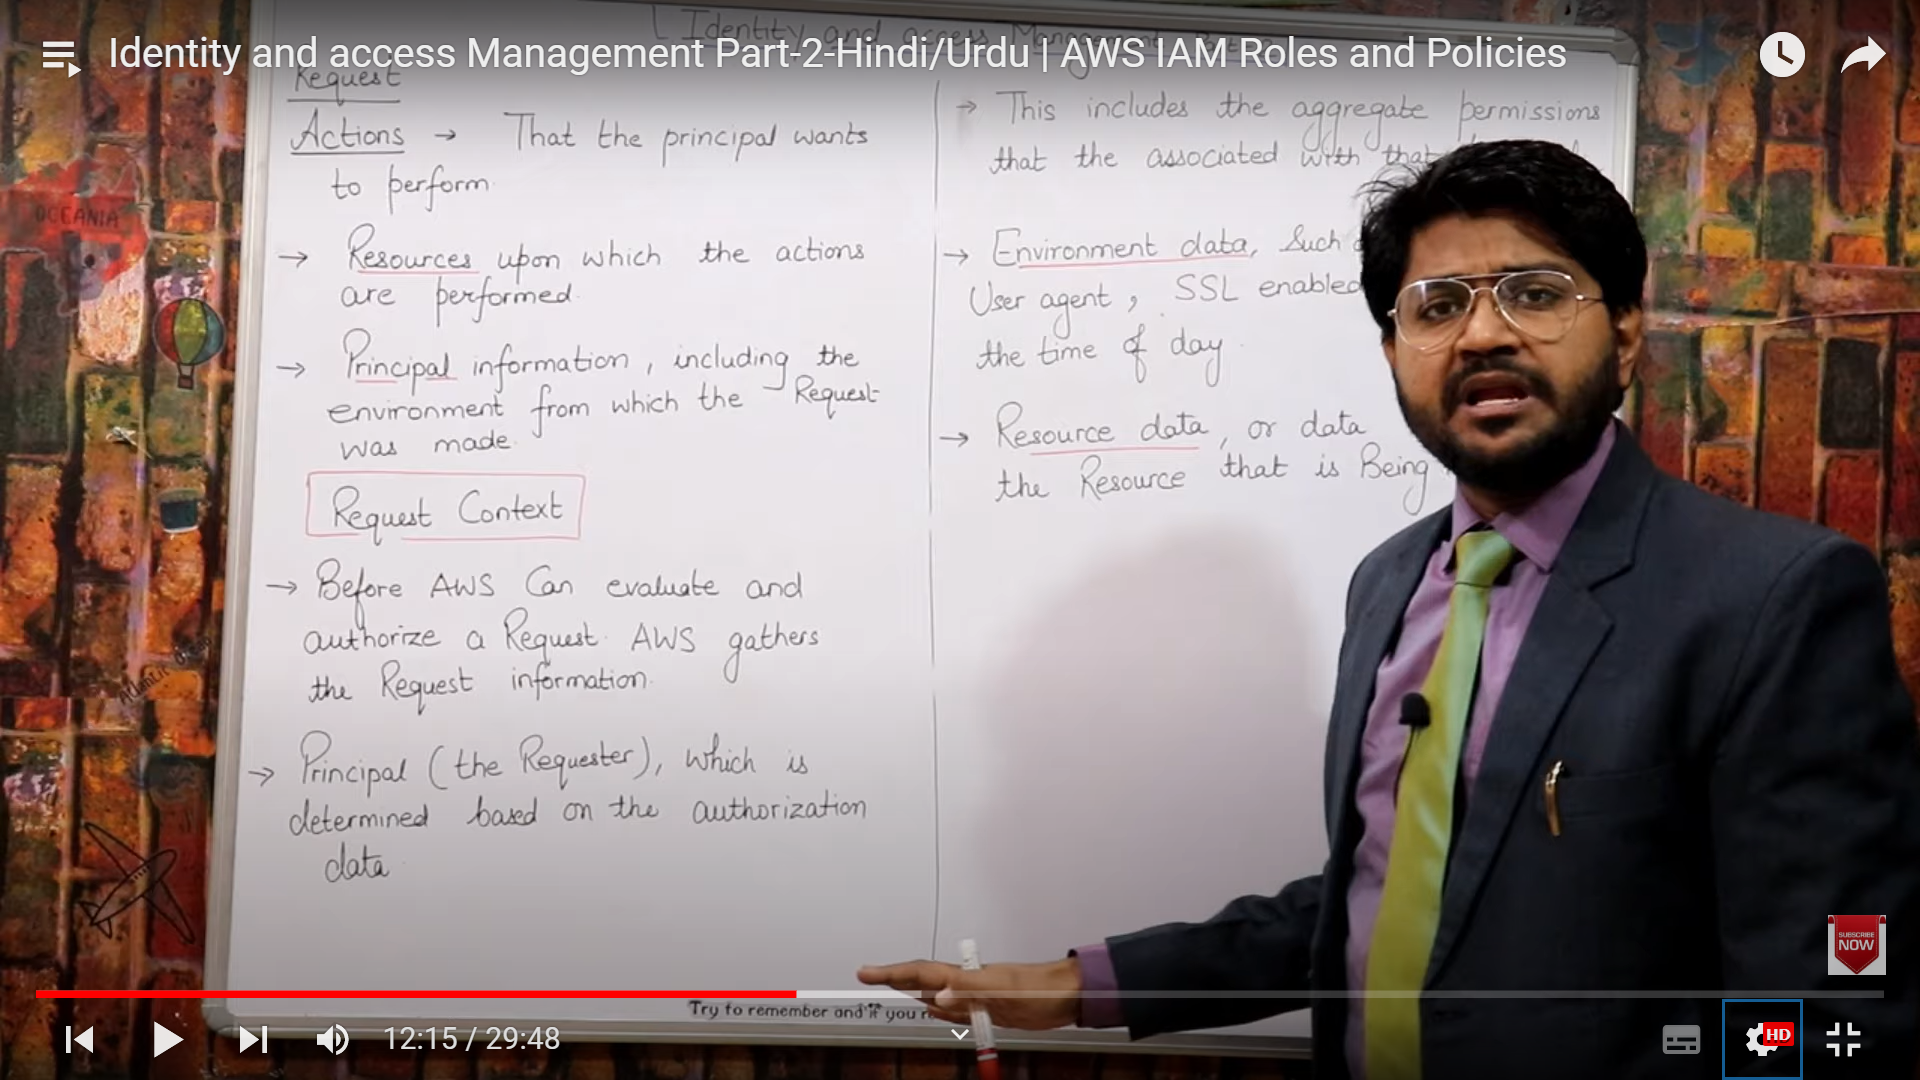 Identity and access Management Part-2-Hindi/Urdu | AWS IAM Roles and Policies
Identity and access Management
Request
Actions → That the principal wants
to perform
→ Resources upon which the actions
are performed.
→ Principal information, including the
environment from which the Request
was made.
Request Context
→ Before AWS Can evaluate and
authorize a Request. AWS gathers
the Request information.
→ Principal (the Requester), which is
determined based on the authorization
data.
→ This includes the aggregate permissions
that the associated with that
→ Environment data, Such
User agent, SSL enabled
the time of day.
→ Resource data, or data
the Resource that is Being
OCEANIA
Try to remember and if you
SUBSCRIBE
NOW
12:15 / 29:48
HD